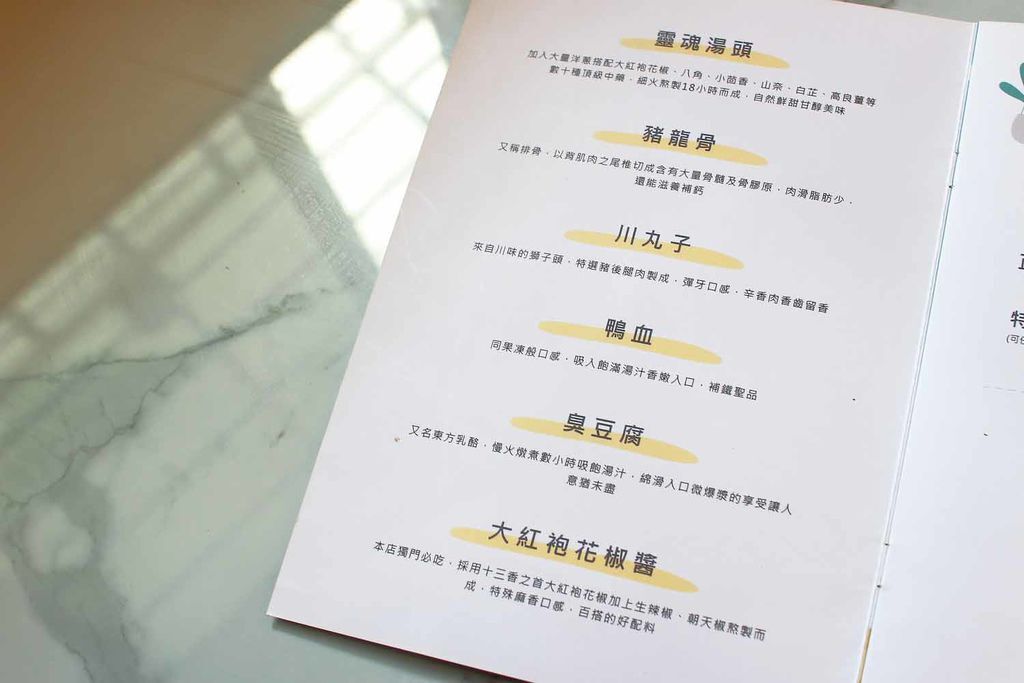 靈魂湯頭
加入大量洋蔥搭配大紅袍花椒、八角、小茴香、山奈、白芷、高良薑等
數十種頂級中藥，細火熬製18小時而成，自然鮮甜甘醇美味
豬龍骨
又稱排骨，以背肌肉之尾椎切成含有大量骨髓及骨膠原，肉滑脂肪少，
還能滋養補鈣
川丸子
來自川味的獅子頭，特選豬後腿肉製成，彈牙口感，辛香肉香齒留香
鴨血
同果凍般口感，吸入飽滿湯汁香嫩入口，補鐵聖品
臭豆腐
又名東方乳酪，慢火燉煮數小時吸飽湯汁，綿滑入口微爆漿的享受讓人
意猶未盡
大紅袍花椒醬
本店獨門必吃，採用十三香之首大紅袍花椒加上生辣椒、朝天椒熬製而
成，特殊麻香口感，百搭的好配料
特